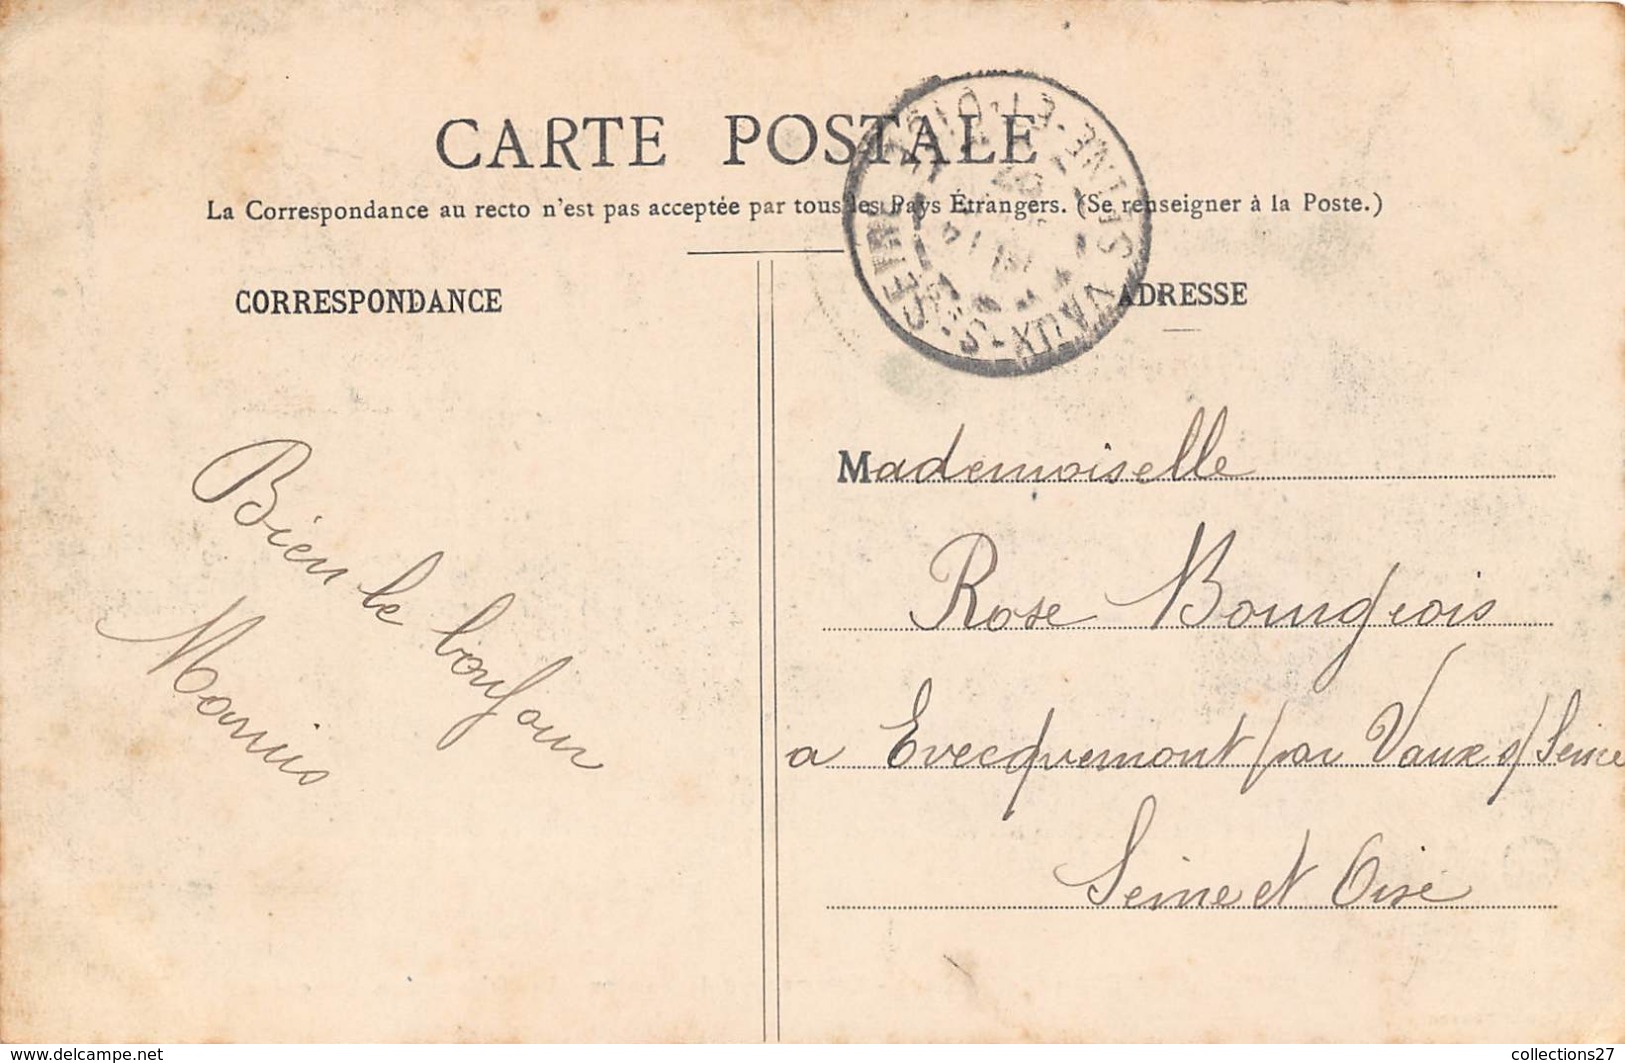 CARTE POSTALE
La Correspondance au recto n'est pas acceptée par tous les Pays Étrangers. (Se renseigner à la Poste.)
CORRESPONDANCE
Bien le bonjour
Marius
ADRESSE
Mademoiselle
Rose Bourgeois
a Evecquemont par Vaux s/Seine
Seine et Oise
VAUX-S-SEINE
SEINE-ET-OISE
www.delcampe.net
collections27